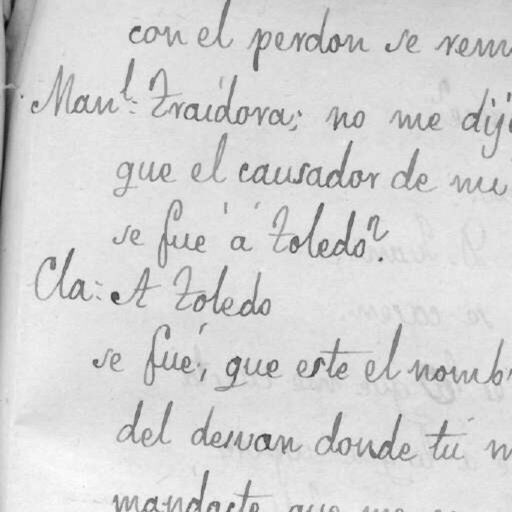 con el perdon se rem
Manl: Traidora; no me dij
que el causador de mi
se fué á Toledo?
Cla: A Toledo
se fué, que este el nomb
del desvan donde tú m
mandaste que me